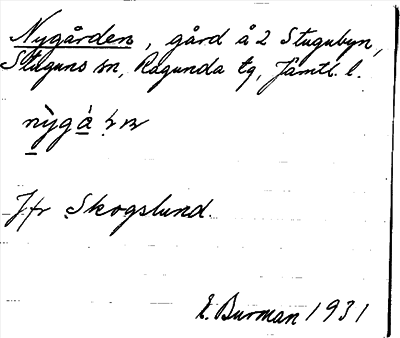 Nygården, gård å 2 Stugubyn,
Stuguns sn, Ragunda tg, Jämtl. l.
Jfr Skogslund.
E. Burman 1931